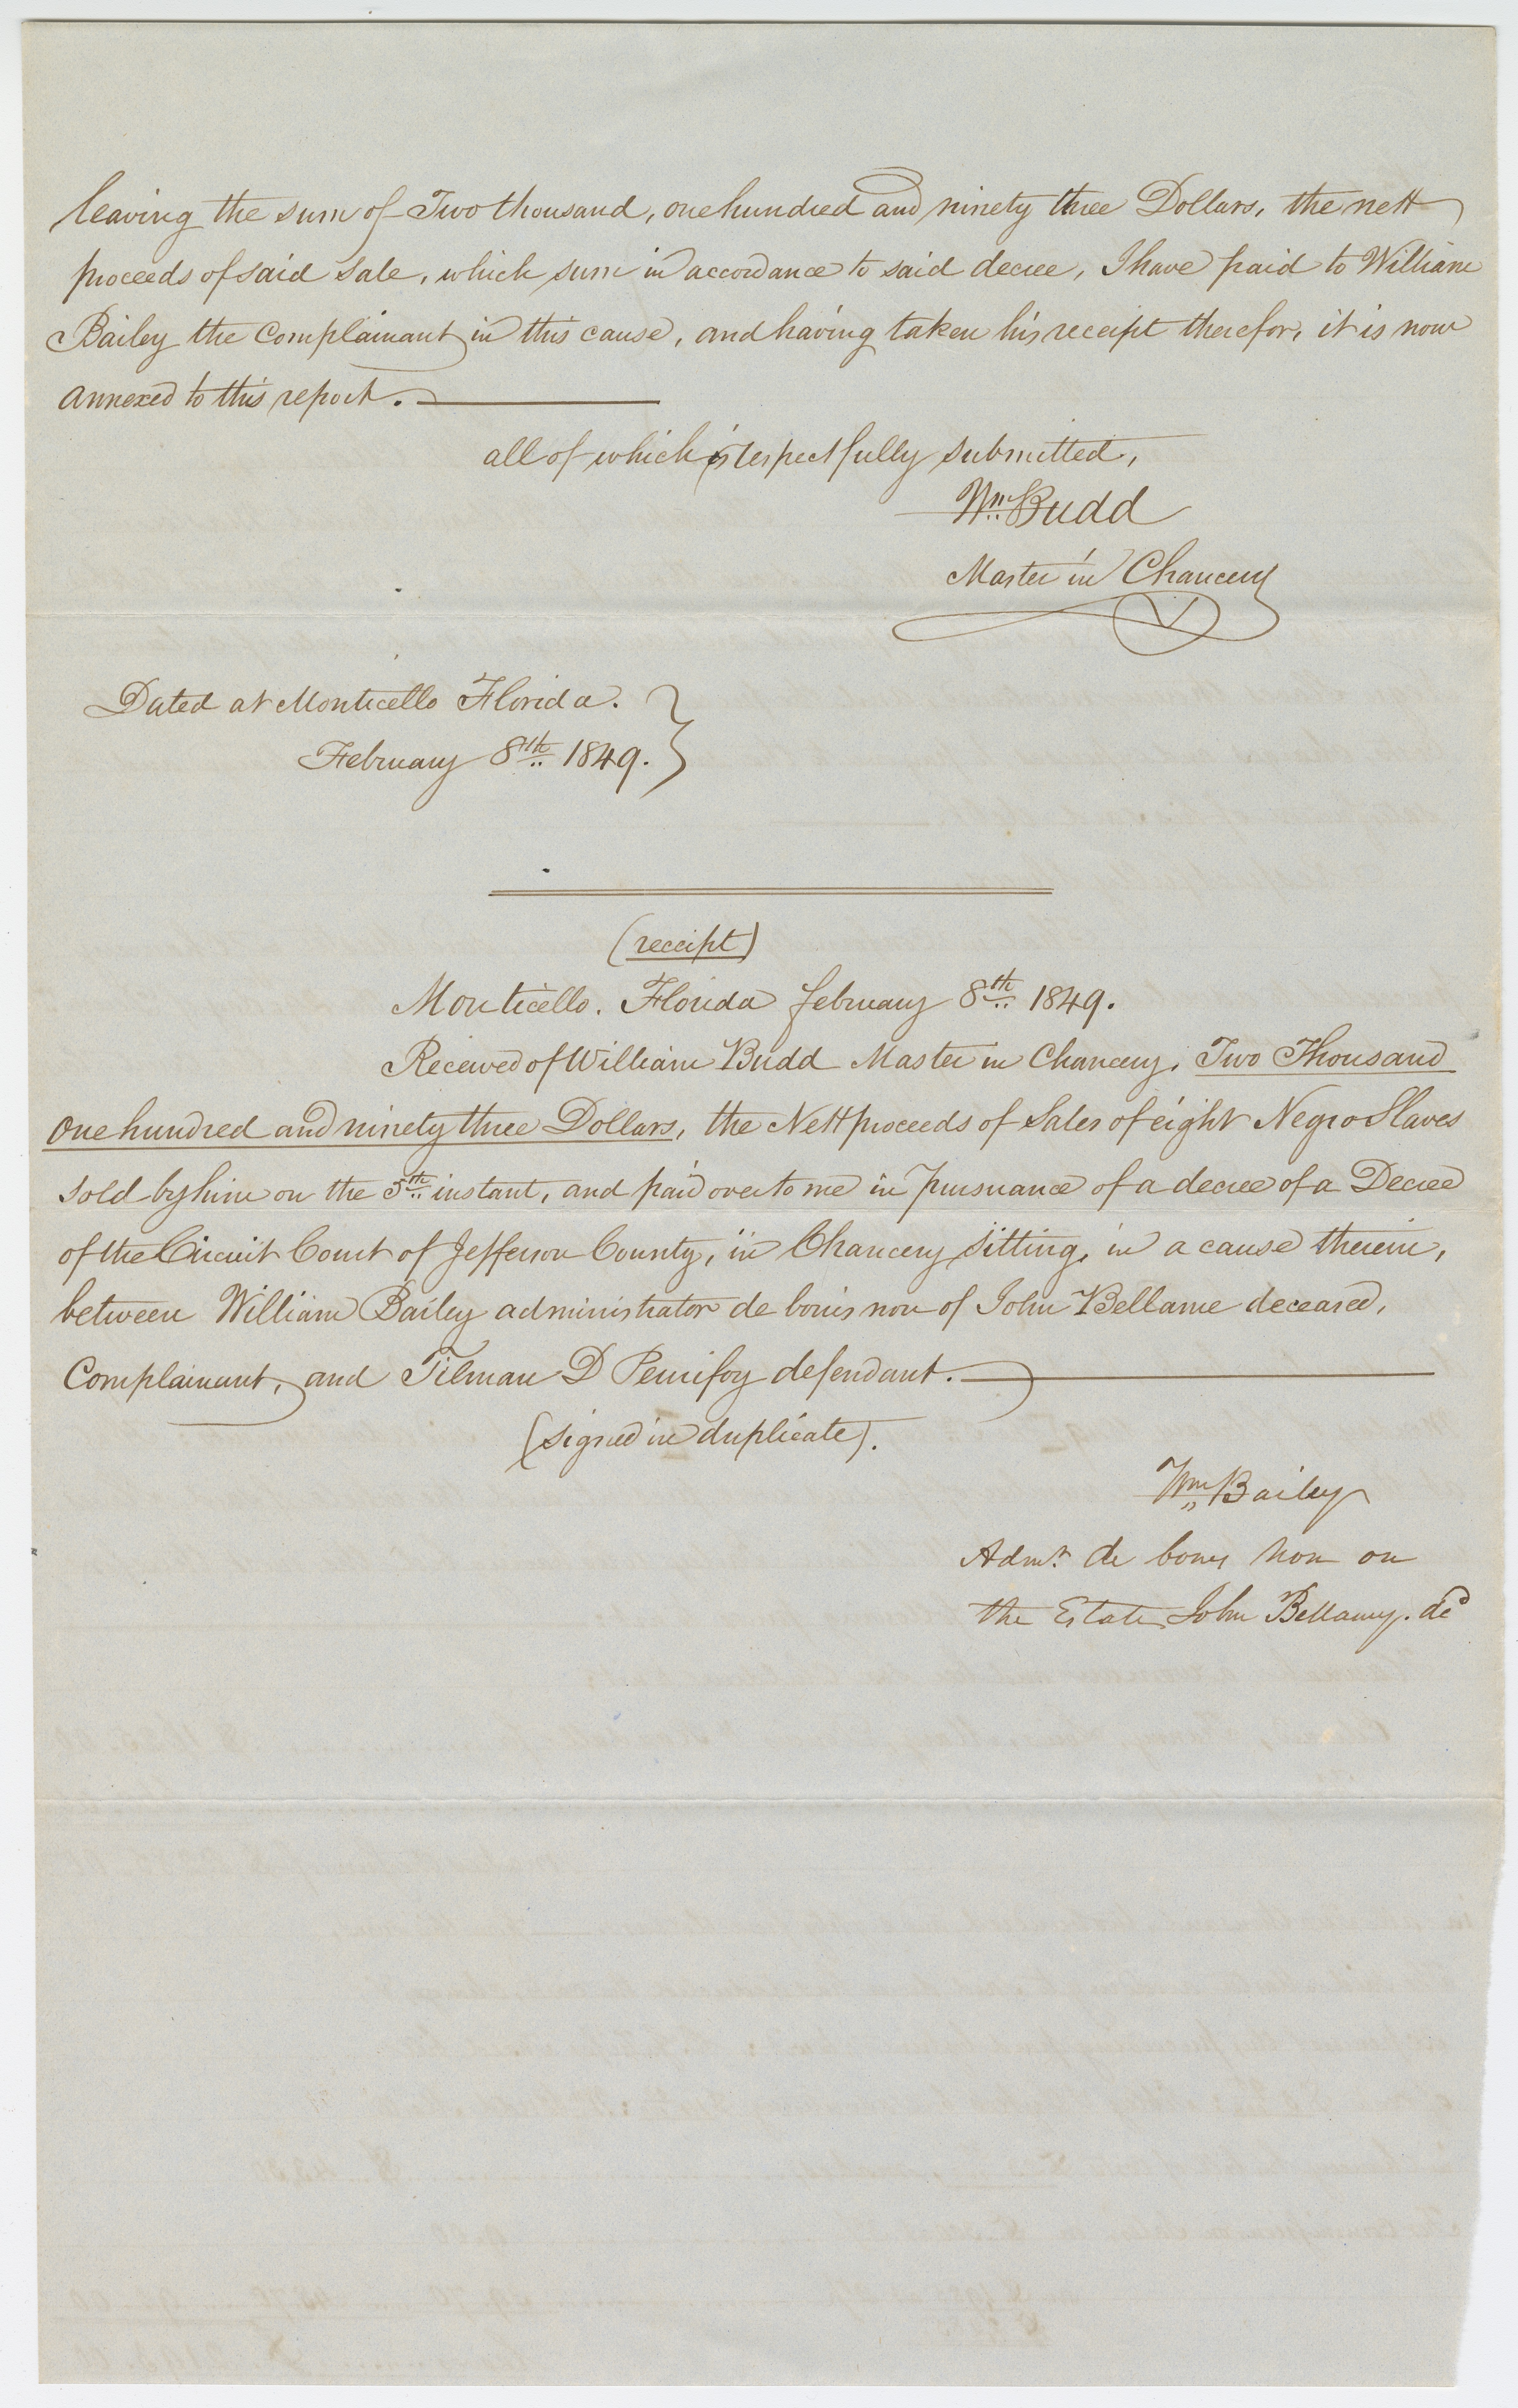 leaving the sum of Two thousand, one hundred and ninety three Dollars, the nett
proceeds of said sale, which sum in accordance to said decree, I have paid to William
Bailey the Complainant in this cause, and having taken his receipt therefor, it is now
annexed to this report.
all of which is respectfully submitted,
Wm. Budd
Master in Chancery
Dated at Monticello Florida.
February 8th 1849.
(receipt)
Monticello. Florida february 8th 1849.
Received of William Budd Master in Chancery, Two Thousand
One hundred and ninety three Dollars, the Nett proceeds of Sales of eight Negro Slaves
sold by him on the 5th instant, and paid over to me in pursuance of a decree of a Decree
of the Circuit Court of Jefferson County, in Chancery sitting, in a cause therein,
between William Bailey administrator de bonis non of John Bellame deceased,
Complainant, and Tilman D Penifoy defendant.
(signed in duplicate).
Wm Bailey
Admr. de bonis non on
the Estate John Bellamy. decd